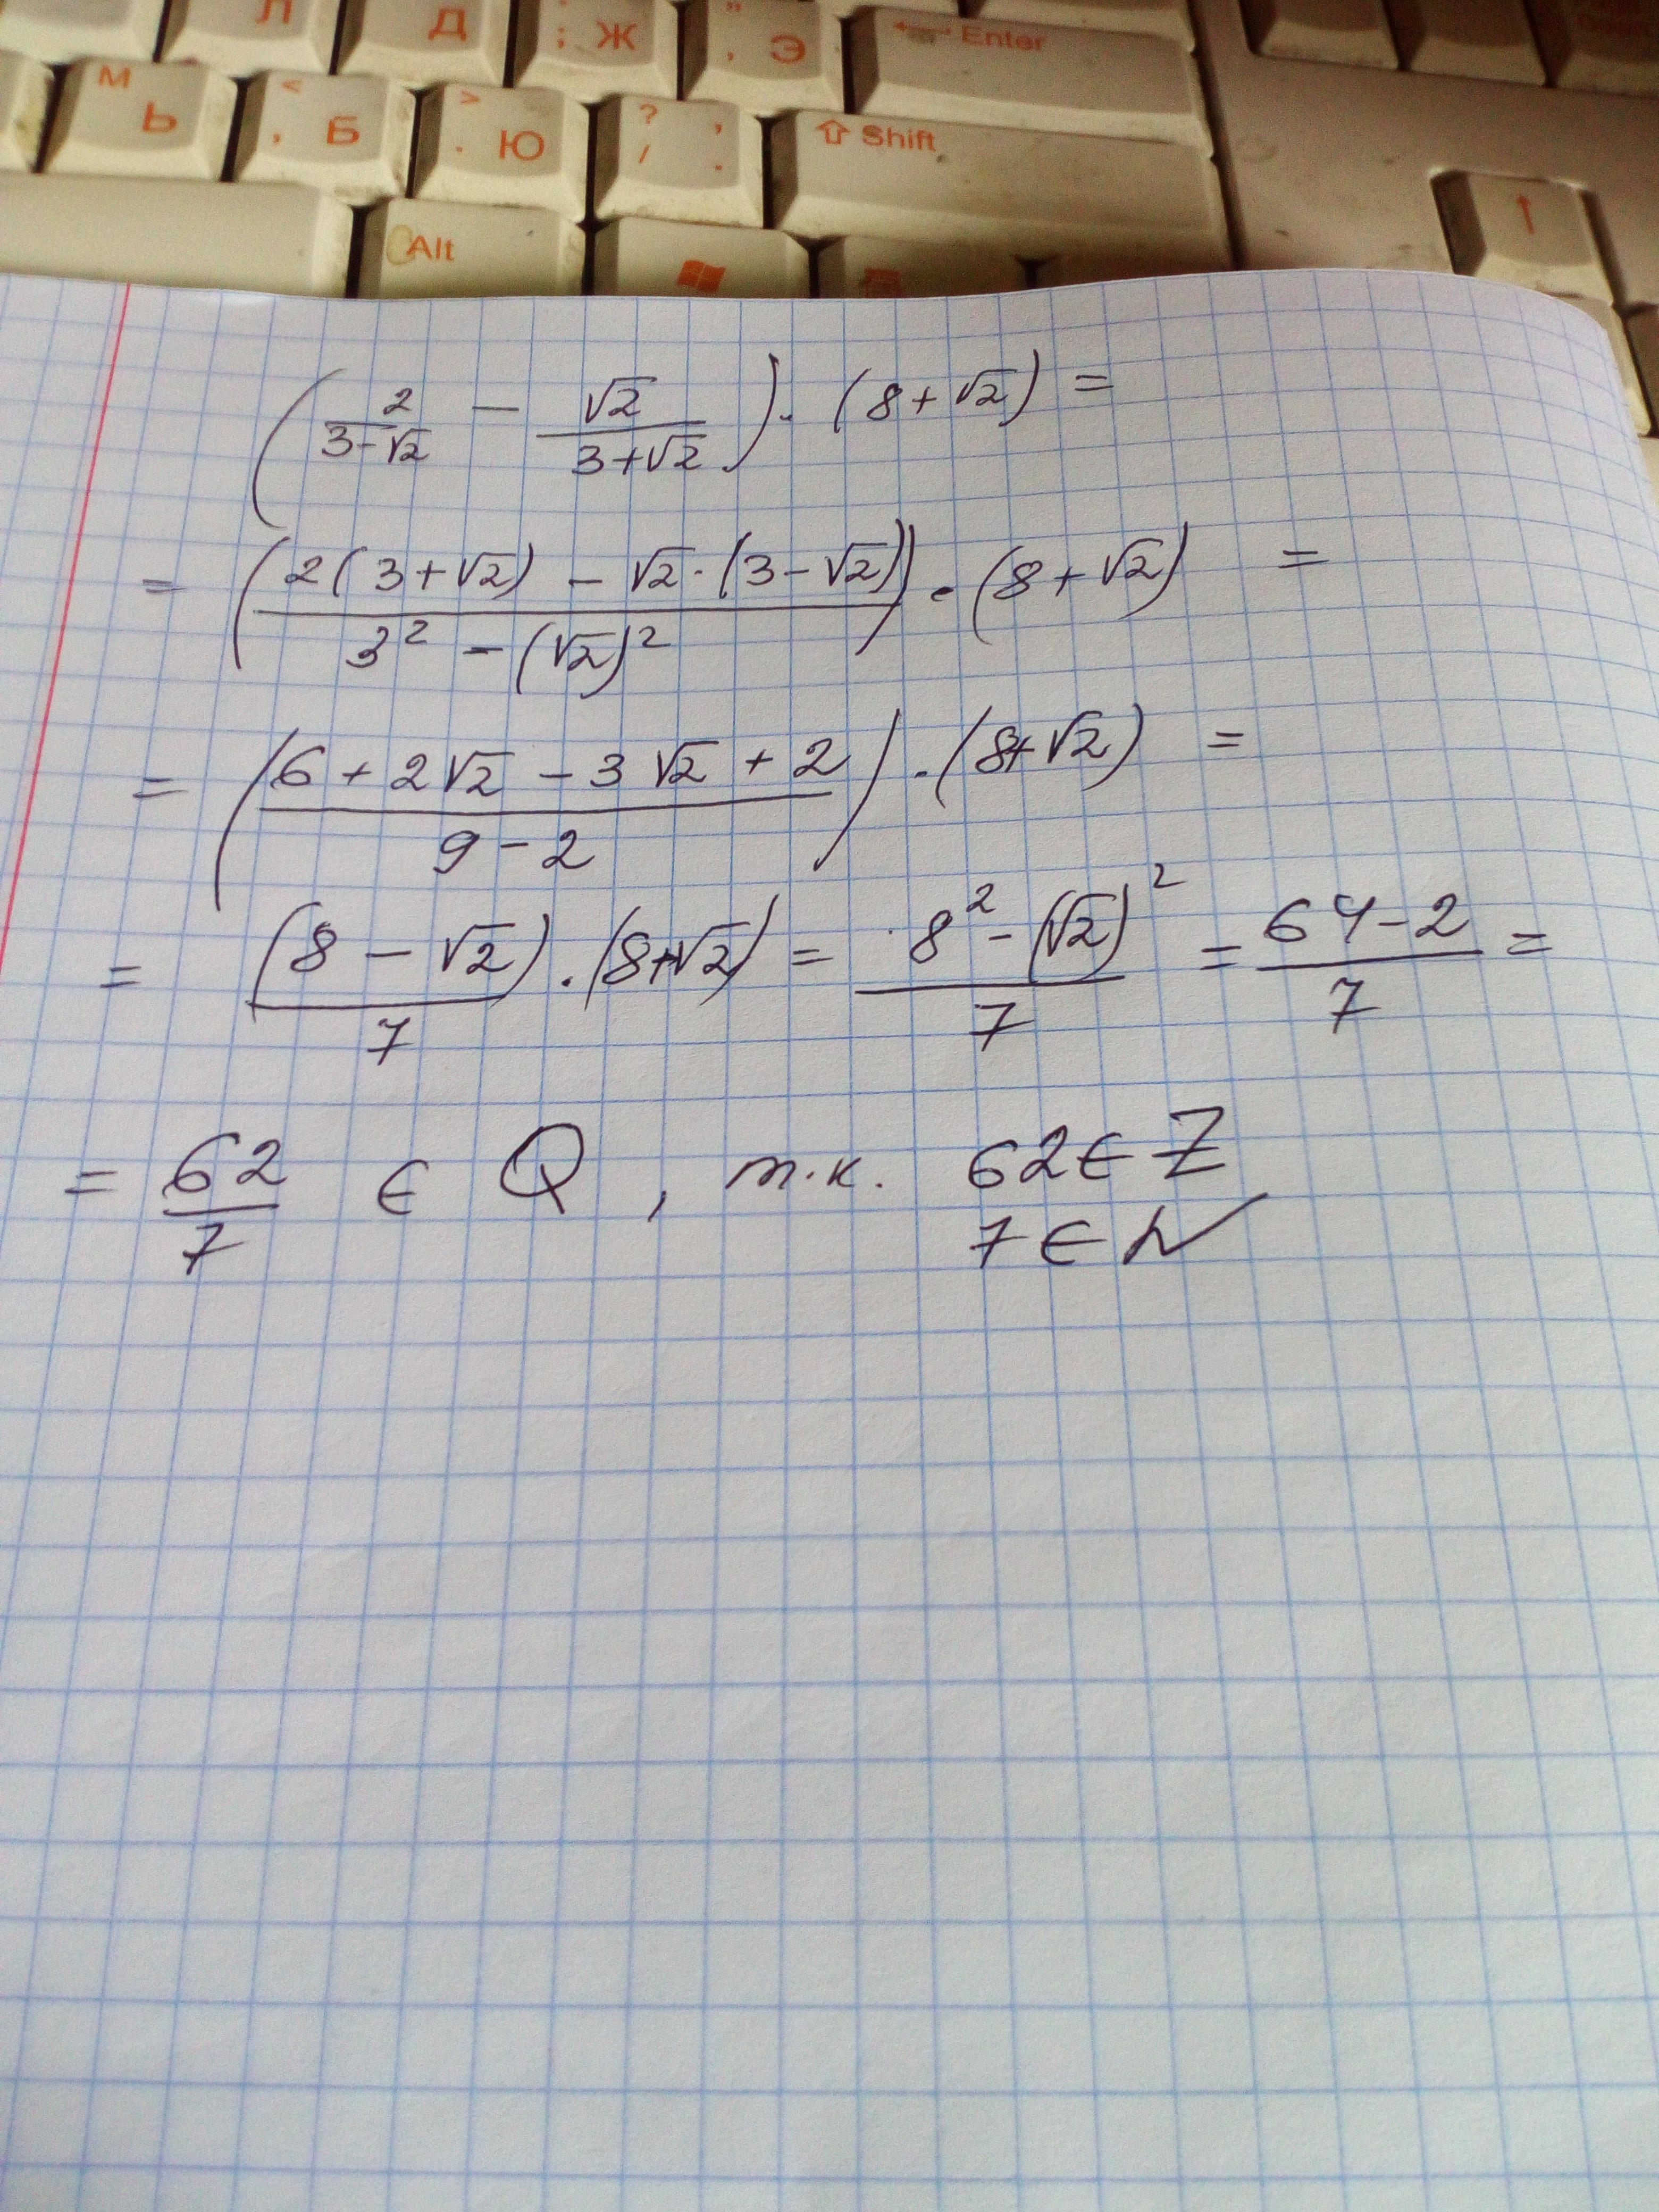 Л Д ; Ж " , Э Enter
М Ь < , Б > . Ю ? / , . Shift
Alt ↑
(2/(3-√2) - √2/(3+√2)) · (8+√2) =
= ((2(3+√2) - √2·(3-√2))/(3² - (√2)²)) · (8+√2) =
= ((6+2√2-3√2+2)/(9-2)) · (8+√2) =
= (8-√2)/7 · (8+√2) = (8²-(√2)²)/7 = (64-2)/7 =
= 62/7 ∈ Q, т.к. 62 ∈ Z
7 ∈ N